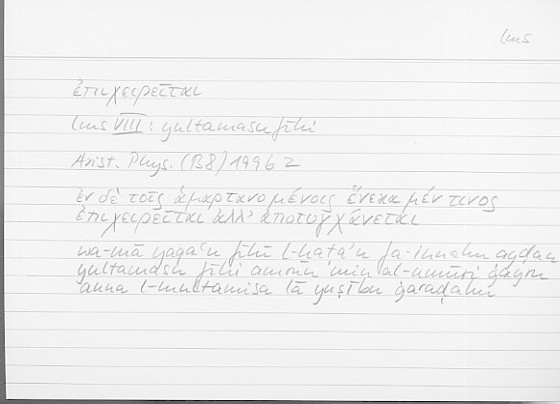 lms
ἐπιχειρεῖται
lms VIII: yultamasu fīhi
Arist. Phys. (B8) 199b 2
ἐν δὲ τοῖς ἁμαρτανομένοις ἕνεκα μέν τινος
ἐπιχειρεῖται ἀλλ' ἀποτυγχάνεται
wa-mā yaqaʿu fīhī l-ḫaṭaʾu fa-innahu ayḍan
yultamasu fīhi amrun min al-umūri ġayru
anna l-multamisa lā yuṣību ġaraḍahu